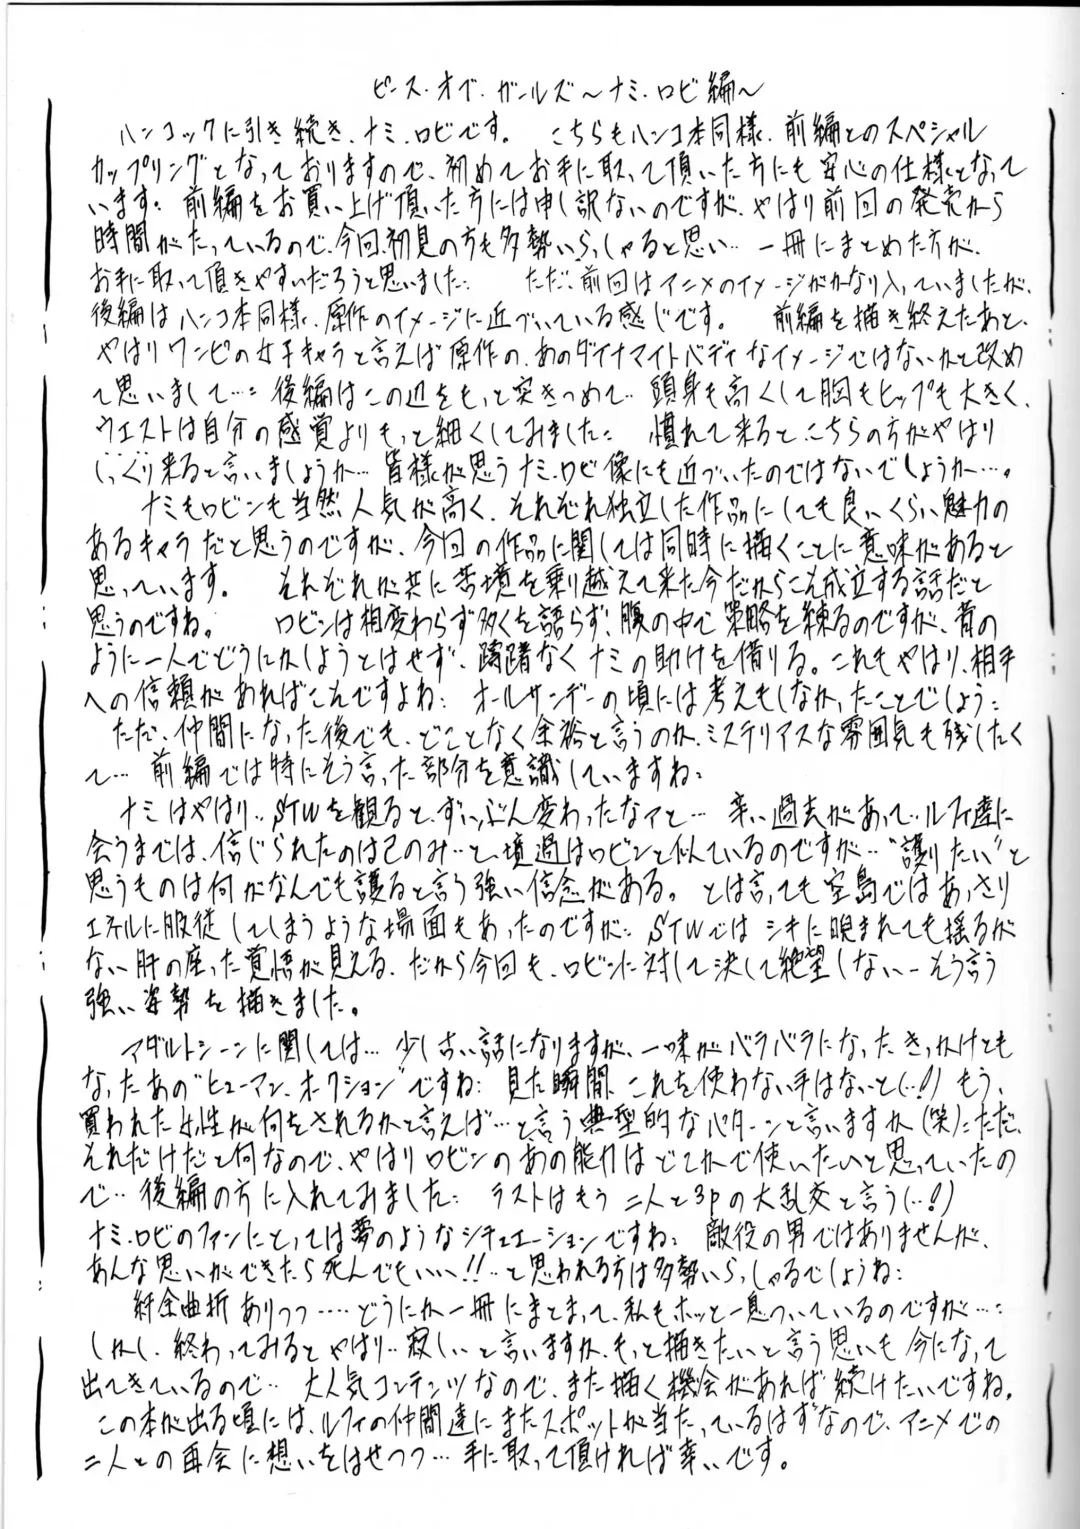 ピース・オブ・ガールズ〜ナミ・ロビ編〜
ハンコックに引き続き、ナミ・ロビです。 こちらもハンコ本同様、前編とのスペシャル
カップリングとなっておりますので、初めてお手に取って頂いた方にも安心の仕様となって
います。前編をお買い上げ頂いた方には申し訳ないのですが、やはり前回の発売から
時間がたっているので、今回、初見の方も多勢いらっしゃると思い‥ 一冊にまとめた方が、
お手に取って頂きやすいだろうと思いました。 ただ、前回はアニメのイメージがかなり入っていましたが、
後編はハンコ本同様、原作のイメージに近づいている感じです。 前編を描き終えたあと、
やはりワンピの女子キャラと言えば原作の、あのダイナマイトバディなイメージではないかと改め
て思いまして…: 後編はこの辺をもっと突きつめて‥ 頭身も高くして胸もヒップも大きく、
ウエストは自分の感覚よりもっと細くしてみました: 慣れて来ると、こちらの方がやはり
しっくり来ると言いましょうか… 皆様が思うナミ・ロビ像にも近づいたのではないでしょうか…。
ナミもロビンも当然人気が高く、それぞれ独立した作品にしても良いくらい魅力の
あるキャラだと思うのですが、今回の作品に関しては同時に描くことに意味があると
思っています。 それぞれが共に苦境を乗り越えて来た今だからこそ成立する話だと
思うのですね。 ロビンは相変わらず多くを語らず、腹の中で策略を練るのですが、昔の
ように一人でどうにかしようとはせず、躊躇なくナミの助けを借りる。これもやはり、相手
への信頼があればこそですよね: オールサンデーの頃には考えもしなかったことでしょう:
ただ、仲間になった後でも、どことなく余裕と言うのか、ミステリアスな雰囲気も残したく
て… 前編では特にそう言った部分を意識していますね:
ナミはやはり‥STWを観ると、ずいぶん変わったなアと… 辛い過去があって‥ルフィ達に
会うまでは、信じられたのは己のみ‥と、境遇はロビンと似ているのですが‥"護りたい"と
思うものは何がなんでも護ると言う強い信念がある。とは言っても空島ではあっさり
エネルに服従してしまうような場面もあったのですが: STWではシキに睨まれても揺るが
ない肝の座った覚悟が見える、だから今回も、ロビンに対して決して絶望しない‥そう言う
強い姿勢を描きました。
アダルトシーンに関しては… 少し古い話になりますが、一味がバラバラになったきっかけとも
なったあの"ヒューマン・オークション"ですね: 見た瞬間、これを使わない手はないと(…!) もう、
買われた女性が何をされるかと言えば…と言う典型的なパターンと言いますか(笑): ただ、
それだけだと何なので、やはりロビンのあの能力はどこかで使いたいと思っていたの
で‥ 後編の方に入れてみました: ラストはもう二人と3Pの大乱交と言う(…!)
ナミ・ロビのファンにとっては夢のようなシチュエーションですね: 敵役の男ではありませんが、
あんな思いができたら死んでもいい!!‥と思われる方は多勢いらっしゃるでしょうね:
紆余曲折ありつつ‥‥どうにか一冊にまとまって、私もホッと一息ついているのですが…:
しかし、終わってみるとやはり‥寂しいと言いますか、もっと描きたいと言う思いも今になって
出てきているので‥ 大人気コンテンツなので、また描く機会があれば続けたいですね。
この本が出る頃には、ルフィの仲間達にまたスポットが当たっているはずなので、アニメでの
二人との再会に想いをはせつつ… 手に取って頂ければ幸いです。